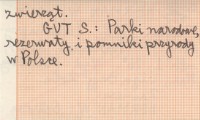 zwierząt.
GUT S.: Parki narodowe,
rezerwaty i pomniki przyrody
w Polsce.